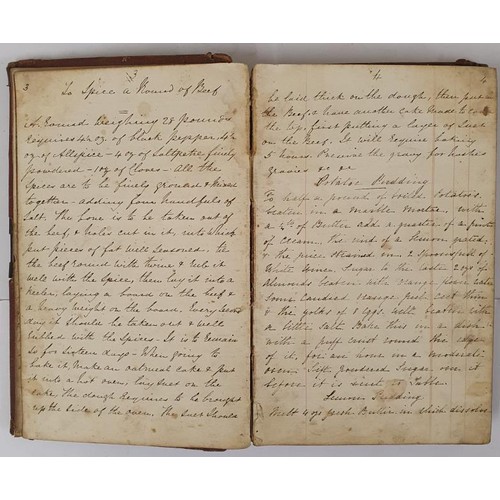 3
To Spice a Round of Beef
A Round Weighing 28 pounds
requires 4 oz. of black pepper, 4
oz. of Allspice - 4 oz of Saltpetre finely
powdered - 1 oz of Cloves - All the
Spices are to be finely ground & mixed
together - adding four handfuls of
Salt. The bone is to be taken out of
the beef & holes cut in it, into which
put pieces of fat well Seasoned. tie
the beef round with twine & rub it
well with the Spice, then lay it into a
keeler, laying a board on the beef &
a heavy weight on the board. Every second
day it should be taken out & well
rubbed with the Spices - It is to remain
so for sixteen days - When going to
bake it, make an oatmeal cake & put
it into a hot oven. lay suet on the
cake. The dough requires to be brought
up the side of the oven. The suet should
4
4
be laid thick on the dough, then put in
the Beef & have another cake made to
the top, first putting a layer of Suet
on the Beef. It will require baking
5 hours. Preserve the gravy for hashes
gravies &c &c
Potatoe Pudding
To half a pound of boiled Potatoes
beaten in a marble mortar, with
a of Butter add a quarter of a pint
of Cream. The rind of a lemon grated,
& the juice strained in. 2 spoonsful of
White Wine. Sugar to the taste 2 ozs of
Almonds beaten with orange flower water
Some candied orange peel cut thin
& the yolks of 8 eggs well beaten with
a little salt. Bake this in a dish
with a puff crust round the edge
of it, for an hour in a moderate
oven. Sift powdered Sugar over it
before it is sent to Table.
Lemon Pudding
Melt 4 ozs fresh Butter in which dissolve